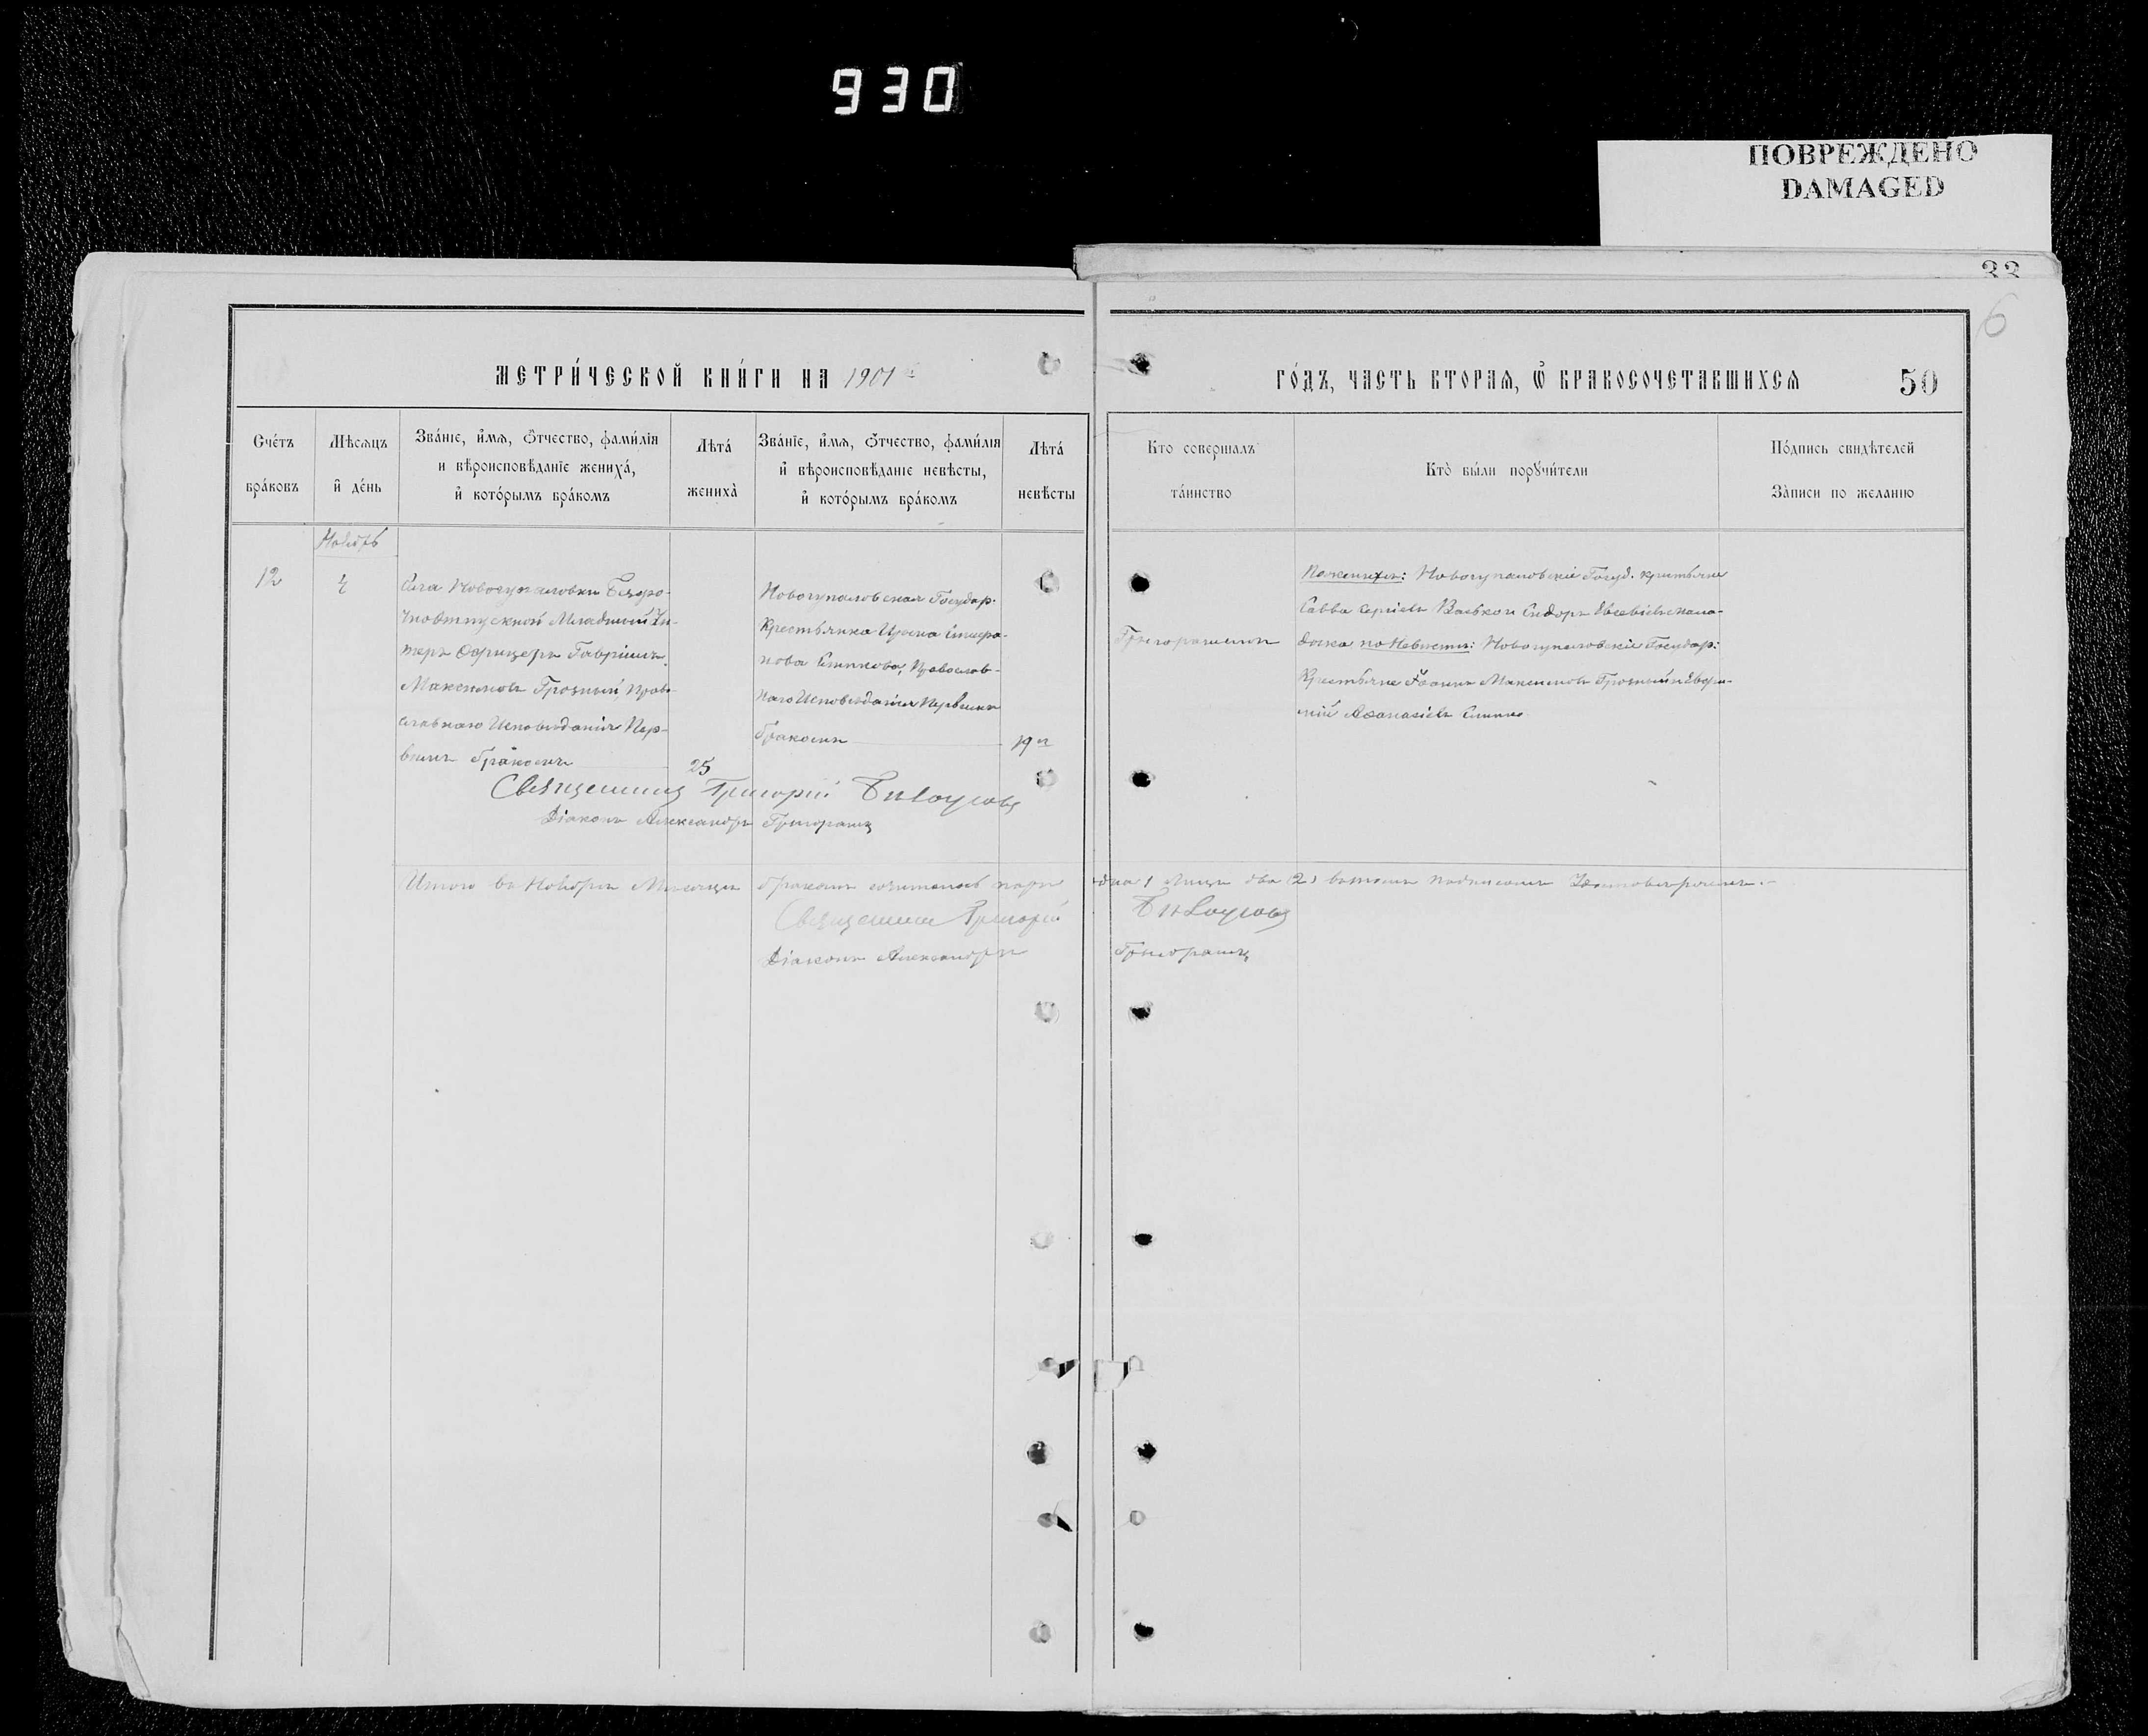 930
ПОВРЕЖДЕНО
DAMAGED
33
6
МЕТРИ́ЧЕСКОЙ КНИ́ГИ НА 1901
ГО́ДЪ, ЧАСТЬ ВТОРАѦ, Ѡ БРАКОСОЧЕТАВШИХСѦ
50
Сче́тъ
бра́ковъ
Мѣсѧцъ
и де́нь
Зва́нїе, и́мѧ, ѻ́тчество, фами́лїѧ
и вѣроисповѣданїе жениха́,
и кото́рымъ бра́комъ
Лѣта́
жениха̀
Зва́нїе, и́мѧ, ѻ́тчество, фами́лїѧ
и вѣроисповѣданїе невѣсты,
и кото́рымъ бра́комъ
Лѣта́
невѣсты
Кто совершалъ
та́инство
Кто̀ бы́ли порꙋчи́тели
По́дпись свидѣтелей
За̀писи по желанїю
Ноябрь
12
4
Села Новогупаловки Безсро-
чноотпускной Младшій Ун-
теръ Офицеръ Гавріилъ
Максимовъ Грозный, Право-
славнаго Исповѣданія Пер-
вымъ бракомъ
25
Новогупаловская Государ:
Крестьянка Ирина
Православ-
наго Исповѣданія Первымъ
бракомъ
19
По женихѣ: Новогупаловскіе Госуд. крестьяне
Савва Сергіевъ Васько и Сидоръ Евсевіевъ
по Невѣстѣ: Новогупаловскіе Государ:
Крестьяне Іоаннъ Максимовъ Грозный и Евфи-
мій Аѳанасіевъ
Священникъ Григорій Бѣлоусовъ
Діаконъ Александръ Григорашъ
Итого въ Ноябрѣ Мѣсяцѣ бракомъ сочеталось пара одна 1 Лицъ два (2) въ томъ подписомъ Удостовѣряемъ.
Священникъ Григорій Бѣлоусовъ
Діаконъ Александръ Григорашъ